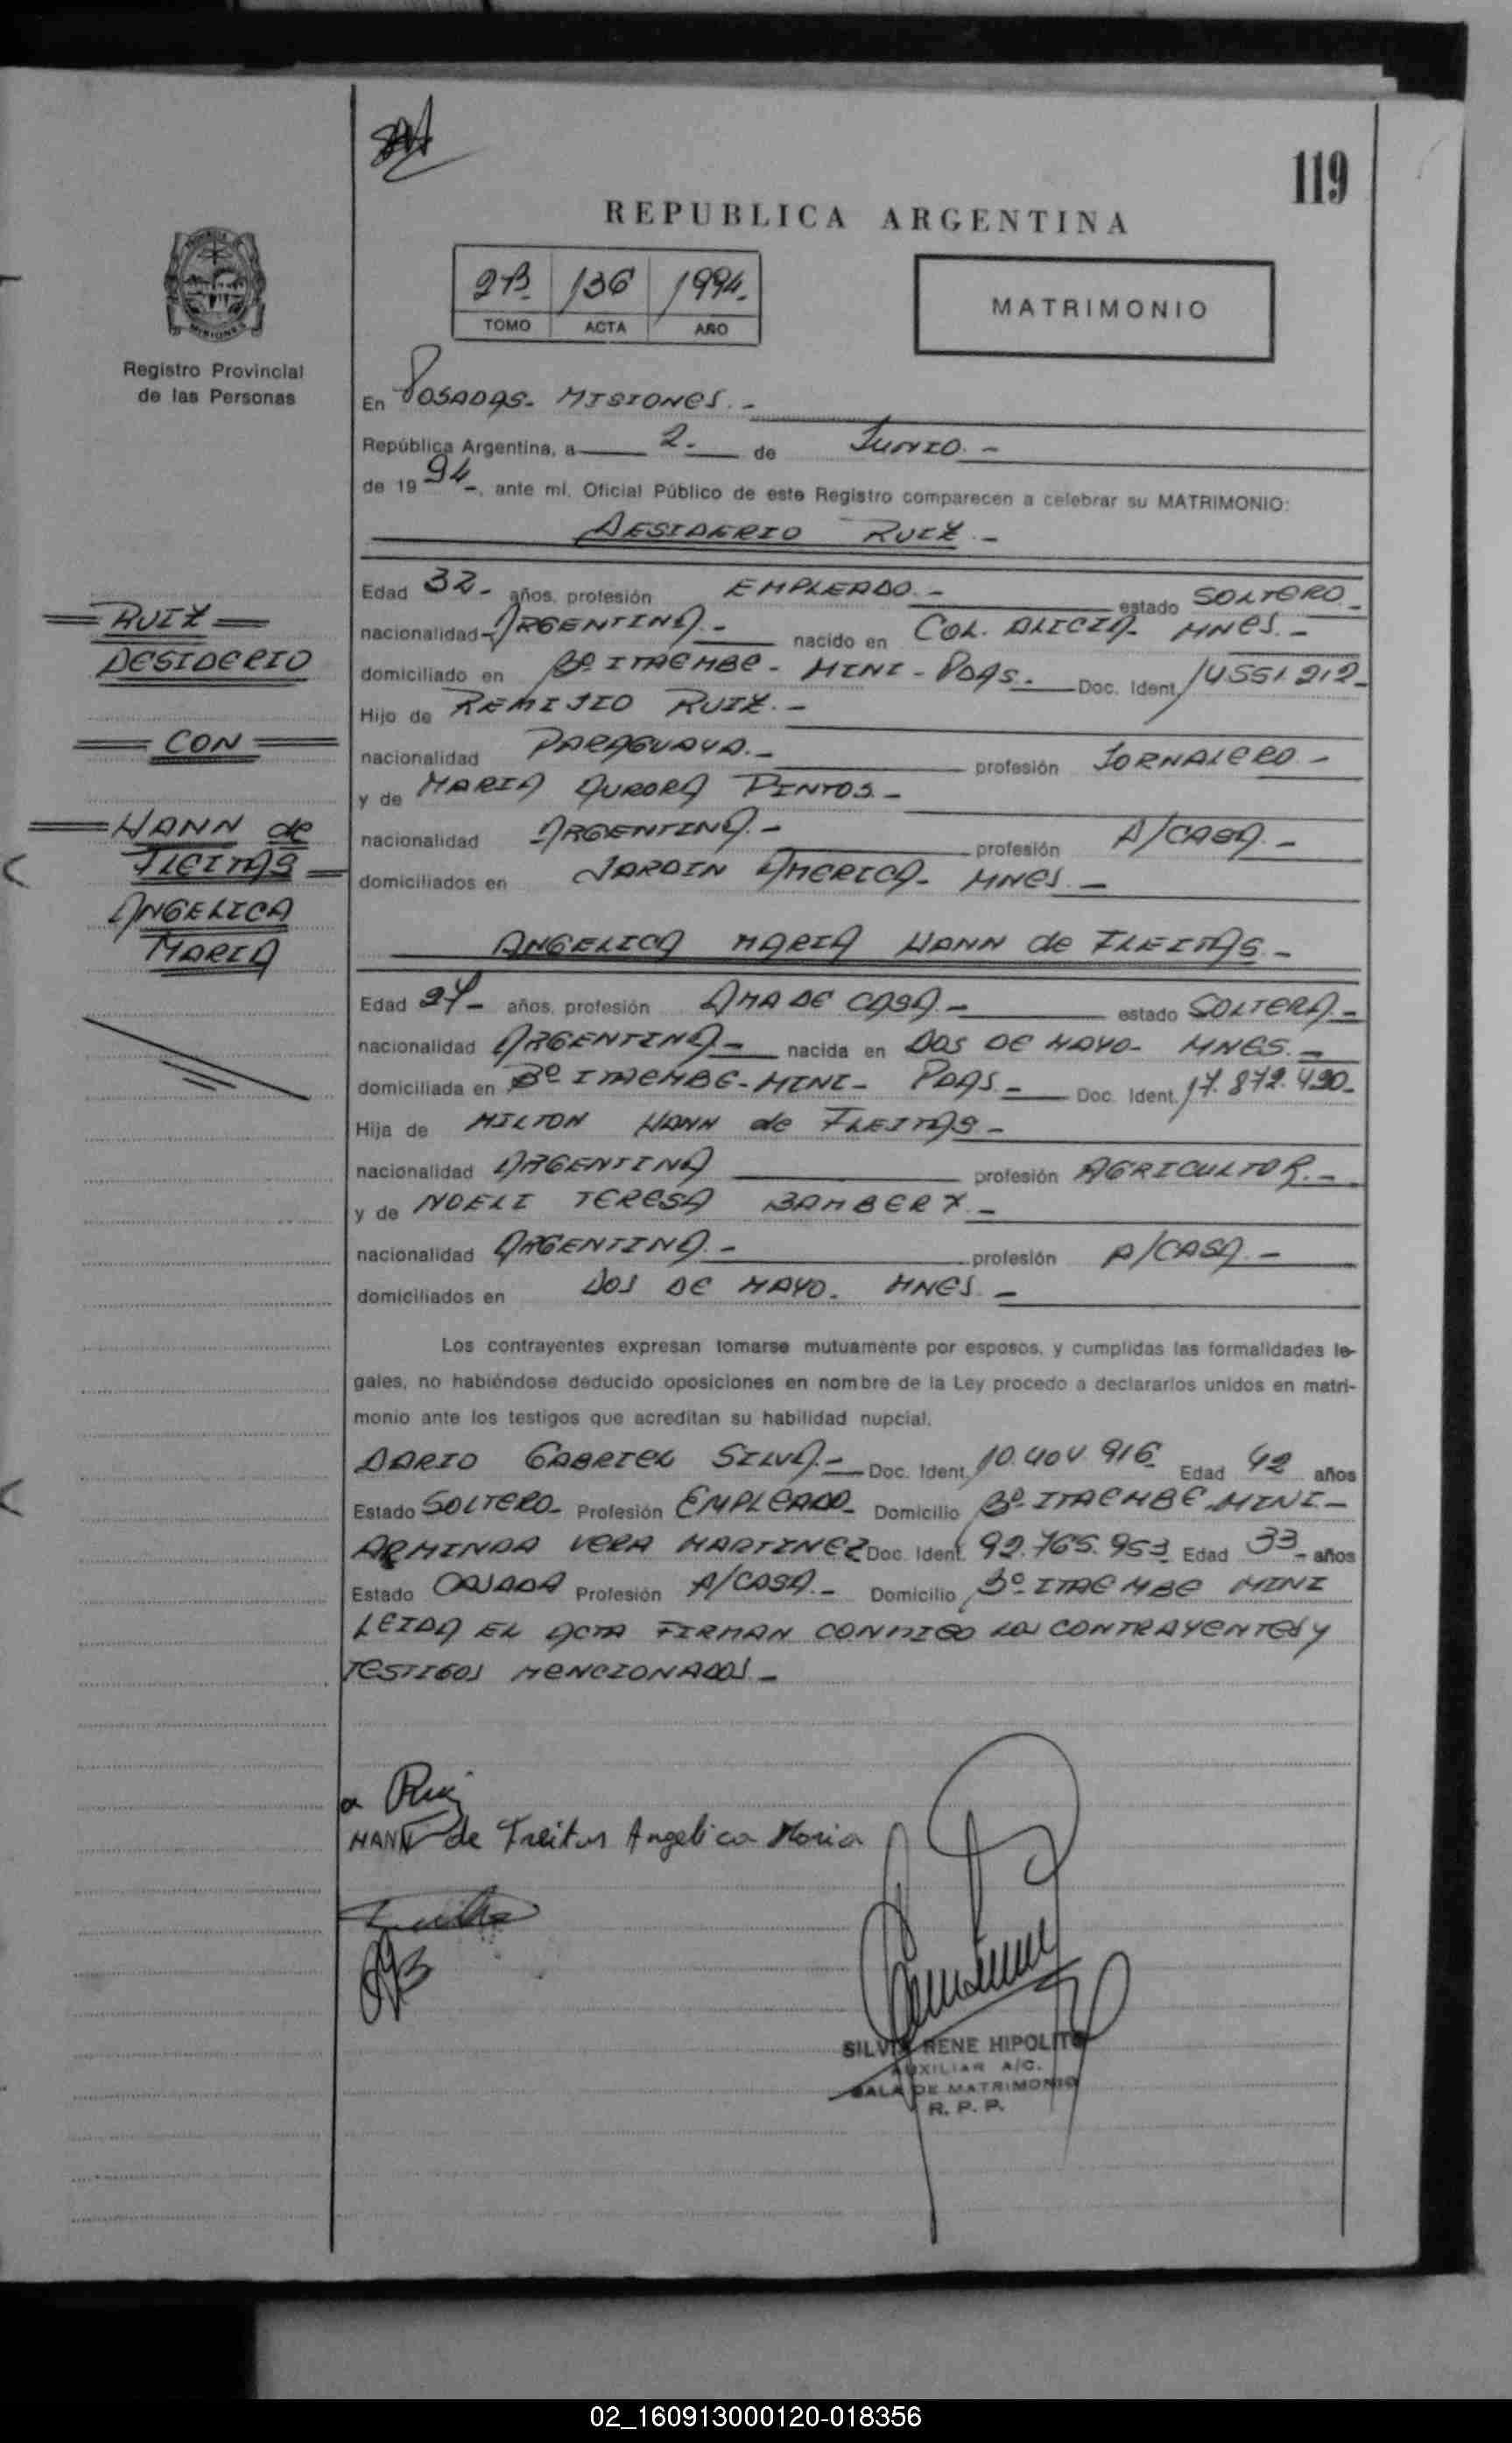 119
REPUBLICA ARGENTINA
2B 136 1994.
TOMO ACTA AÑO
MATRIMONIO
PROVINCIA DE MISIONES
Registro Provincial
de las Personas
En POSADAS- MISIONES.-
República Argentina, a 2.- de JUNIO.-
de 1994-, ante mí, Oficial Público de este Registro comparecen a celebrar su MATRIMONIO:
DESIDERIO RUIZ.-
Edad 32- años, profesión EMPLEADO.- estado SOLTERO-
nacionalidad ARGENTINA.- nacido en COL. ALICIA- MNES.-
domiciliado en Bº ITAEMBE- MINI- PDAS.- Doc. Ident.
Hijo de REMIJIO RUIZ.-
nacionalidad PARAGUAYA.- profesión JORNALERO-
y de MARIA AURORA PINTOS-
nacionalidad ARGENTINA.- profesión A/CASA.-
domiciliados en JARDIN AMERICA- MNES.-
ANGELICA MARIA HANN de FLEITAS.-
Edad años, profesión AMA DE CASA.- estado SOLTERA.-
nacionalidad ARGENTINA- nacida en DOS DE MAYO- MNES.-
domiciliada en Bº ITAEMBE-MINI- PDAS- Doc. Ident. 17.872.490-
Hija de MILTON HANN de FLEITAS-
nacionalidad ARGENTINA profesión AGRICULTOR.-
y de NOELI TERESA
nacionalidad ARGENTINA.- profesión A/CASA.-
domiciliados en DOS DE MAYO. MNES.-
Los contrayentes expresan tomarse mutuamente por esposos, y cumplidas las formalidades le-
gales, no habiéndose deducido oposiciones en nombre de la Ley procedo a declararlos unidos en matri-
monio ante los testigos que acreditan su habilidad nupcial.
DARIO GABRIEL SILVA.- Doc. Ident. 10.404.916 Edad 42 años
Estado SOLTERO- Profesión EMPLEADO- Domicilio Bº ITAEMBE-MINI-
ARMINDA VERA MARTINEZ Doc. Ident. 92.765.953 Edad 33- años
Estado CASADA Profesión A/CASA.- Domicilio Bº ITAEMBE MINI
LEIDA EL ACTA FIRMAN CONMIGO LOS CONTRAYENTES Y
TESTIGOS MENCIONADOS.-
RUIZ
DESIDERIO
CON
HANN de
FLEITAS
ANGELICA
MARIA
Ruiz
HANN de Freitas Angelica Maria
SILVIA RENE HIPOLITO
AUXILIAR A/C.
SALA DE MATRIMONIO
R. P. P.
02_160913000120-018356